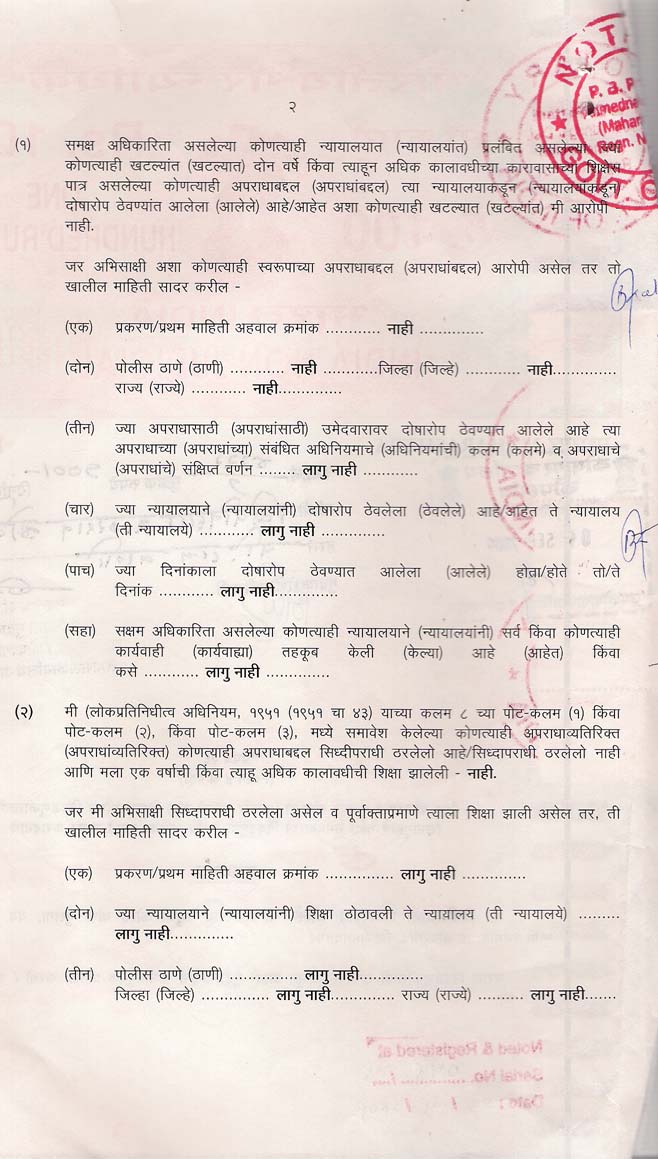 २
(१) समक्ष अधिकारिता असलेल्या कोणत्याही न्यायालयात (न्यायालयांत) प्रलंबित असलेल्या ज्या
कोणत्याही खटल्यांत (खटल्यात) दोन वर्षे किंवा त्याहून अधिक कालावधीच्या कारावासाच्या शिक्षेस
पात्र असलेल्या कोणत्याही अपराधाबद्दल (अपराधांबद्दल) त्या न्यायालयाकडून (न्यायालयाकडून)
दोषारोप ठेवण्यांत आलेला (आलेले) आहे/आहेत अशा कोणत्याही खटल्यात (खटल्यांत) मी आरोपी
नाही.
जर अभिसाक्षी अशा कोणत्याही स्वरूपाच्या अपराधाबद्दल (अपराधांबद्दल) आरोपी असेल तर तो
खालील माहिती सादर करील -
(एक) प्रकरण/प्रथम माहिती अहवाल क्रमांक ............ नाही ..............
(दोन) पोलीस ठाणे (ठाणी) ............ नाही ............जिल्हा (जिल्हे) ............ नाही..............
राज्य (राज्ये) ............ नाही..............
(तीन) ज्या अपराधासाठी (अपराधांसाठी) उमेदवारावर दोषारोप ठेवण्यात आलेले आहे त्या
अपराधाच्या (अपराधांच्या) संबंधित अधिनियमाचे (अधिनियमांची) कलम (कलमे) व अपराधाचे
(अपराधांचे) संक्षिप्त वर्णन ........ लागु नाही ............
(चार) ज्या न्यायालयाने (न्यायालयांनी) दोषारोप ठेवलेला (ठेवलेले) आहे/आहेत ते न्यायालय
(ती न्यायालये) ............ लागु नाही ..............
(पाच) ज्या दिनांकाला दोषारोप ठेवण्यात आलेला (आलेले) होता/होते तो/ते
दिनांक ............ लागु नाही..............
(सहा) सक्षम अधिकारिता असलेल्या कोणत्याही न्यायालयाने (न्यायालयांनी) सर्व किंवा कोणत्याही
कार्यवाही (कार्यवाह्या) तहकूब केली (केल्या) आहे (आहेत) किंवा
कसे ............ लागु नाही ..............
(२) मी (लोकप्रतिनिधीत्व अधिनियम, १९५१ (१९५१ चा ४३) याच्या कलम ८ च्या पोट-कलम (१) किंवा
पोट-कलम (२), किंवा पोट-कलम (३), मध्ये समावेश केलेल्या कोणत्याही अपराधाव्यतिरिक्त
(अपराधांव्यतिरिक्त) कोणत्याही अपराधाबद्दल सिध्दीपराधी ठरलेलो आहे/सिध्दापराधी ठरलेलो नाही
आणि मला एक वर्षाची किंवा त्याहू अधिक कालावधीची शिक्षा झालेली - नाही.
जर मी अभिसाक्षी सिध्दापराधी ठरलेला असेल व पूर्वाक्ताप्रमाणे त्याला शिक्षा झाली असेल तर, ती
खालील माहिती सादर करील -
(एक) प्रकरण/प्रथम माहिती अहवाल क्रमांक ............... लागु नाही ..............
(दोन) ज्या न्यायालयाने (न्यायालयांनी) शिक्षा ठोठावली ते न्यायालय (ती न्यायालये) .........
लागु नाही..............
(तीन) पोलीस ठाणे (ठाणी) ............... लागु नाही..............
जिल्हा (जिल्हे) ............... लागु नाही.............. राज्य (राज्ये) .......... लागु नाही.......
Noted & Registered at
Serial No.
Date: / /